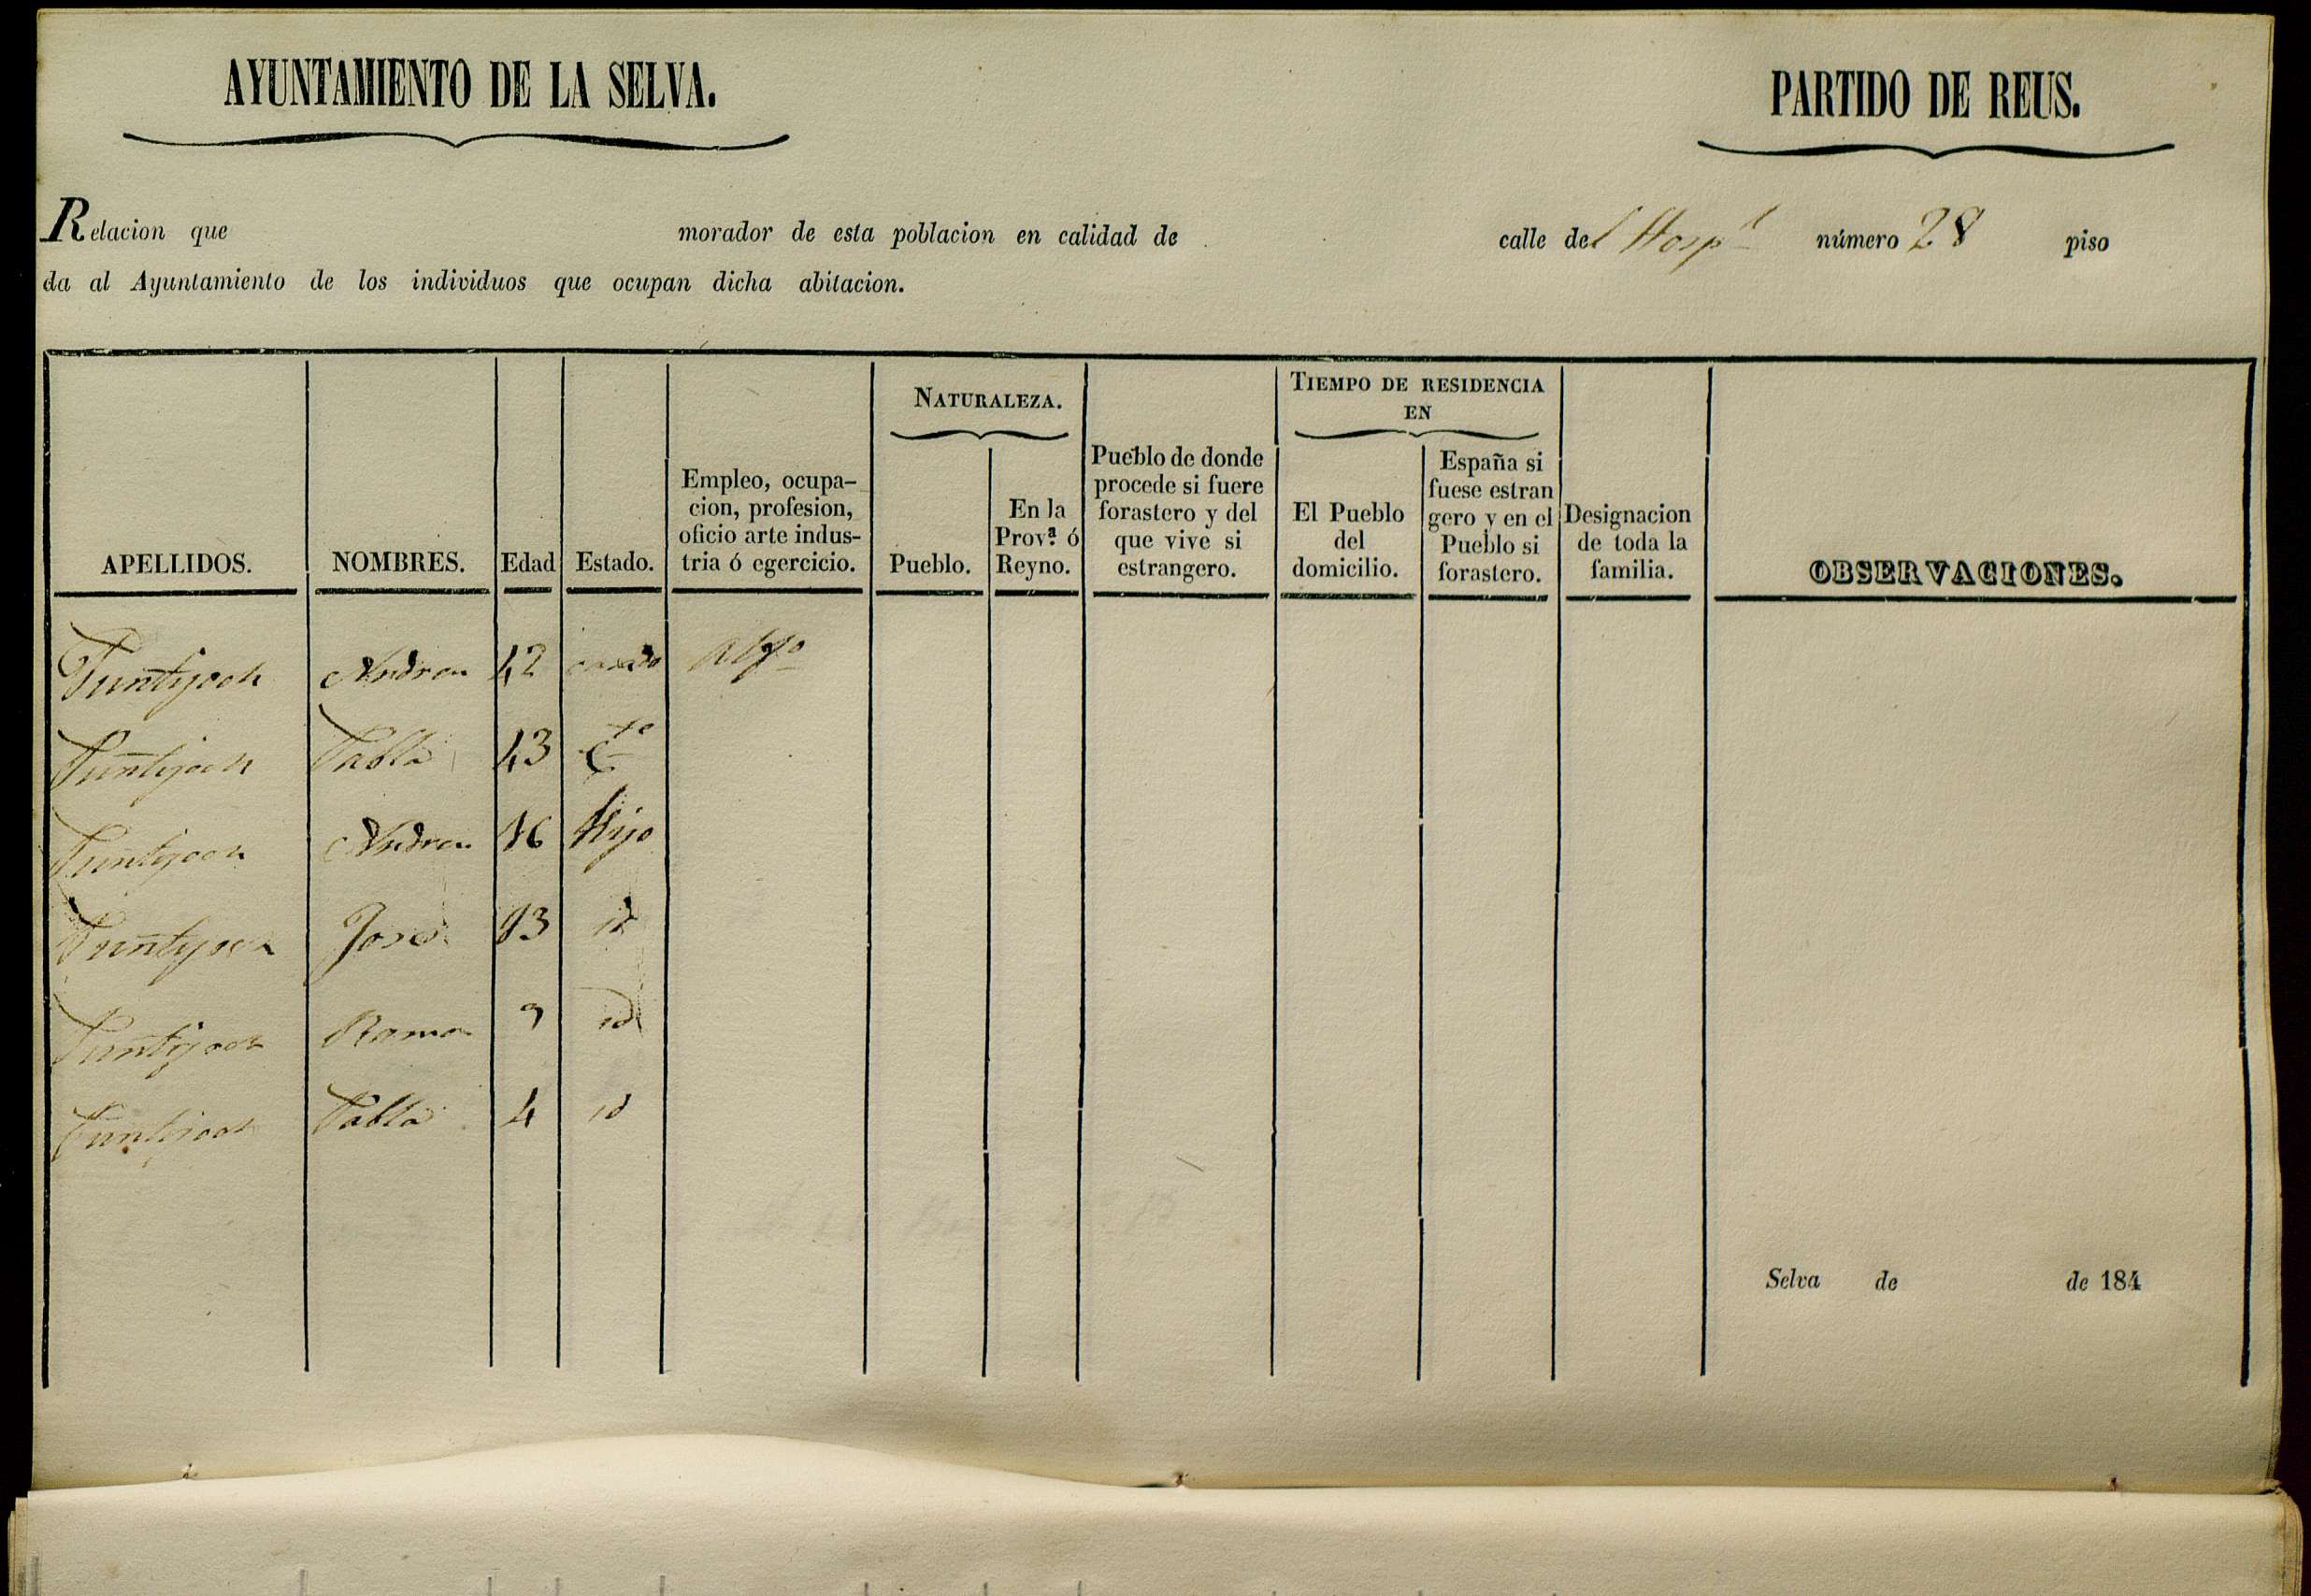 AYUNTAMIENTO DE LA SELVA.
PARTIDO DE REUS.
Relacion que morador de esta poblacion en calidad de calle del Hosp.l número 28 piso
da al Ayuntamiento de los individuos que ocupan dicha abitacion.
APELLIDOS.
NOMBRES.
Edad
Estado.
Empleo, ocupa-
cion, profesion,
oficio arte indus-
tria ó egercicio.
NATURALEZA.
Pueblo.
En la
Prov.ª ó
Reyno.
Pueblo de donde
procede si fuere
forastero y del
que vive si
estrangero.
TIEMPO DE RESIDENCIA
EN
El Pueblo
del
domicilio.
España si
fuese estran
gero y en el
Pueblo si
forastero.
Designacion
de toda la
familia.
OBSERVACIONES.
Andreu 42 casado
43
Andreu 16 Hijo
José 13 id
9 id
4 id
Selva de de 184